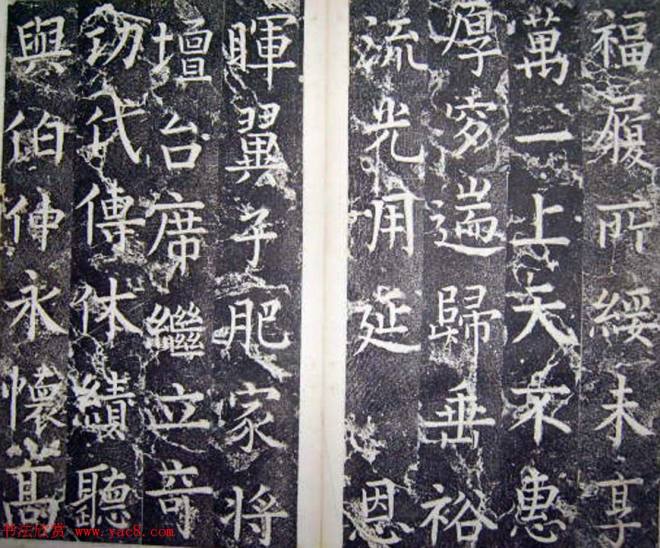 福履所綏未享
萬一上天不惠
厚穸遄歸垂裕
流光用延恩
暉翼子肥家将
壇台席繼立竒
功代傳休績聽
與伯仲永懷高
书法欣赏 www.yac8.com